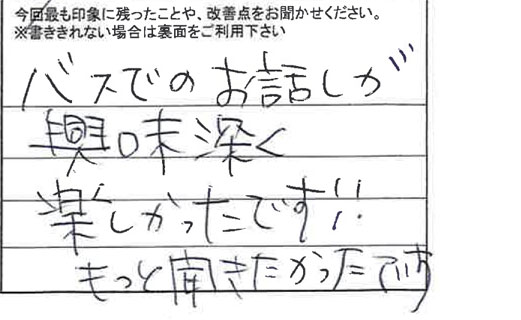 今回最も印象に残ったことや、改善点をお聞かせください。
※書ききれない場合は裏面をご利用下さい
バスでのお話しが
興味深く
楽しかったです!!
もっと聞きたかったです